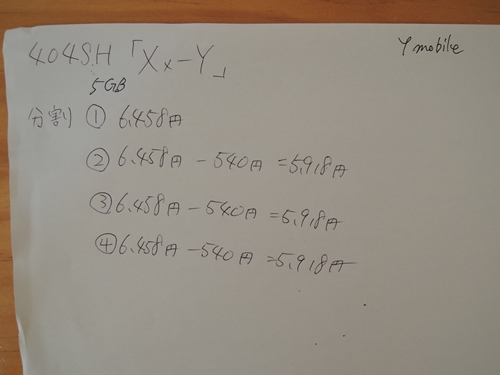 Y mobile
404SH「Xx-Y」
5GB
分割 ① 6.458円
② 6.458円 - 540円 = 5.918円
③ 6.458円 - 540円 = 5.918円
④ 6.458円 - 540円 = 5.918円